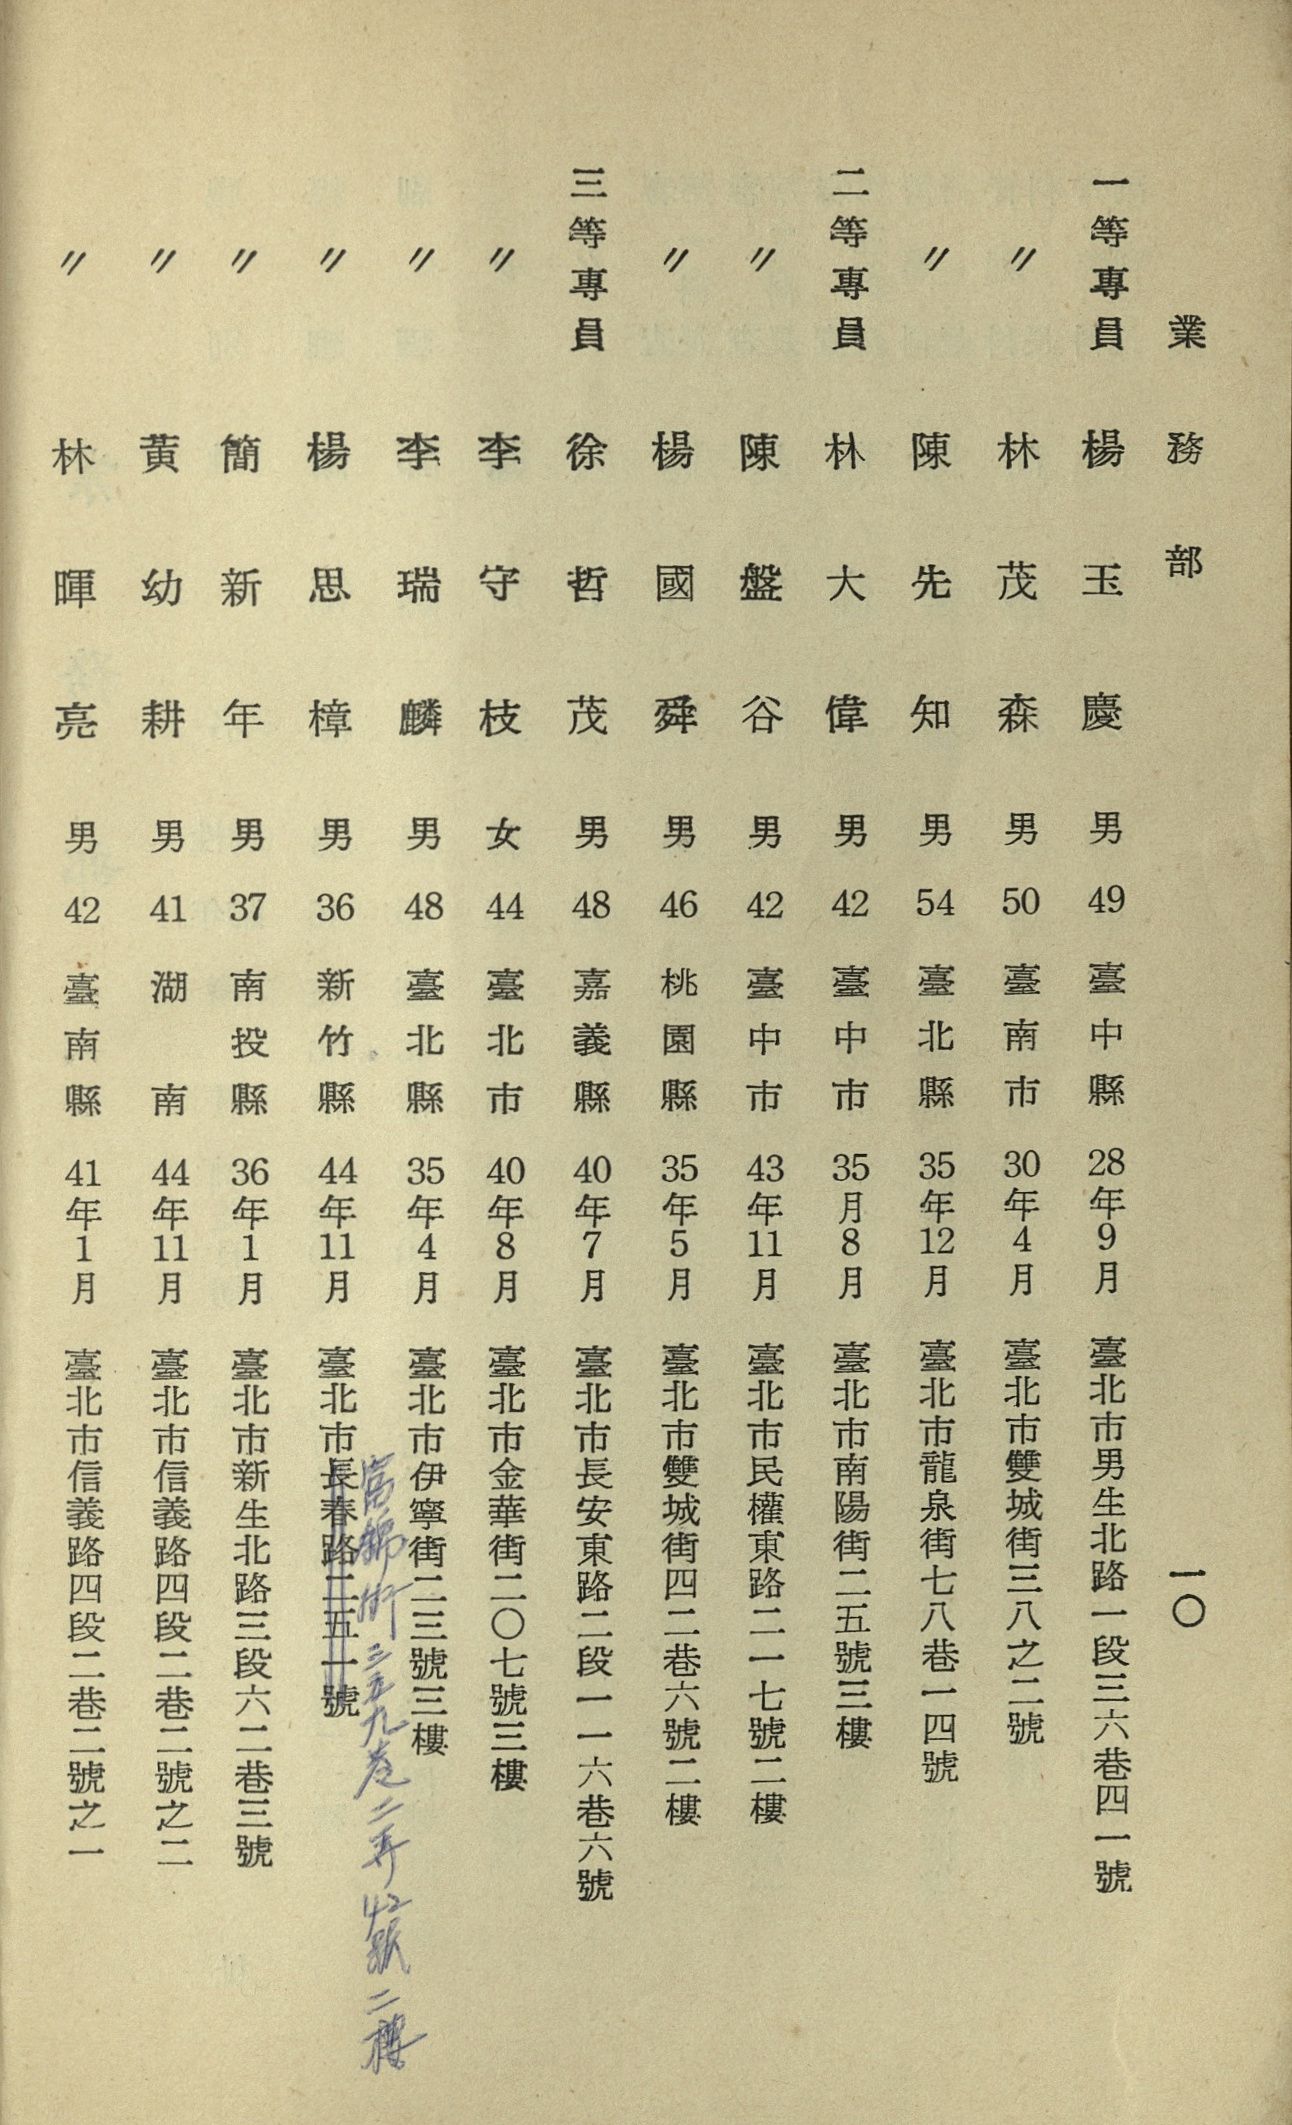 業務部
一〇
一等專員 楊玉慶 男 49 臺中縣 28年9月 臺北市男生北路一段三六巷四一號
〃 林茂森 男 50 臺南市 30年4月 臺北市雙城街三八之二號
〃 陳先知 男 54 臺北縣 35年12月 臺北市龍泉街七八巷一四號
二等專員 林大偉 男 42 臺中市 35月8月 臺北市南陽街二五號三樓
〃 陳盤谷 男 42 臺中市 43年11月 臺北市民權東路二一七號二樓
〃 楊國舜 男 46 桃園縣 35年5月 臺北市雙城街四二巷六號二樓
三等專員 徐哲茂 男 48 嘉義縣 40年7月 臺北市長安東路二段一一六巷六號
〃 李守枝 女 44 臺北市 40年8月 臺北市金華街二〇七號三樓
〃 李瑞麟 男 48 臺北縣 35年4月 臺北市伊寧街二三號三樓
富錦街三五九巷二弄42號二樓
〃 楊思樟 男 36 新竹縣 44年11月 臺北市長春路二五一號
〃 簡新年 男 37 南投縣 36年1月 臺北市新生北路三段六二巷三號
〃 黃幼耕 男 41 湖南 44年11月 臺北市信義路四段二巷二號之二
〃 林暉亮 男 42 臺南縣 41年1月 臺北市信義路四段二巷二號之一